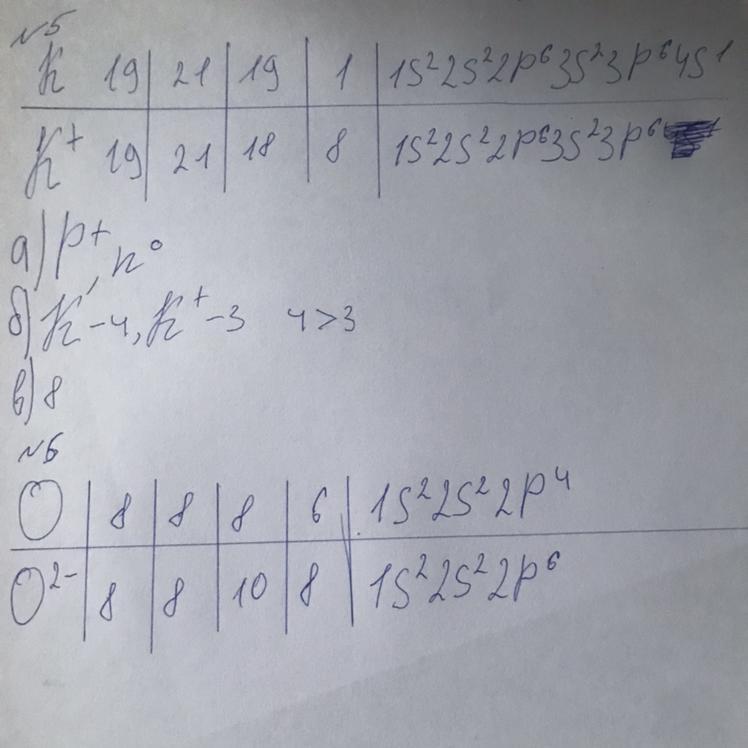 №5
K 19 21 19 1 1s²2s²2p⁶3s²3p⁶4s¹
K⁺ 19 21 18 8 1s²2s²2p⁶3s²3p⁶
а) p⁺, n⁰
б) K-4, K⁺-3 4>3
в) 8
№6
O 8 8 8 6 1s²2s²2p⁴
O²⁻ 8 8 10 8 1s²2s²2p⁶